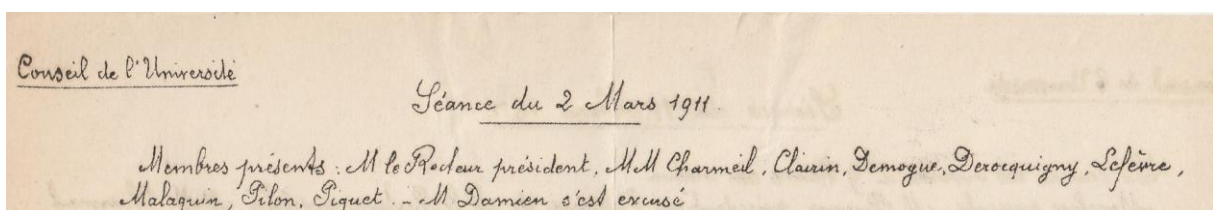 Conseil de l'Université
Séance du 2 Mars 1911.
Membres présents : M le Recteur président, MM Charmeil, Clairin, Demogue, Derocquigny, Lefèvre,
Malaquin, Pilon, Piquet. - M Damien s'est excusé